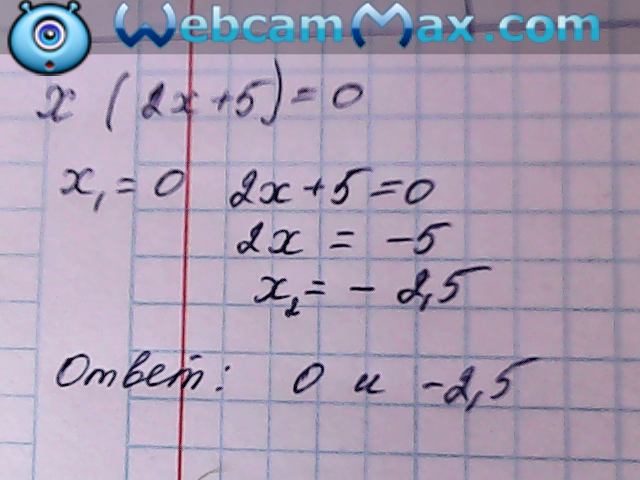 WebcamMax.com
x (2x+5)=0
x₁=0 2x+5=0
2x = -5
x₂= - 2,5
Ответ: 0 и -2,5